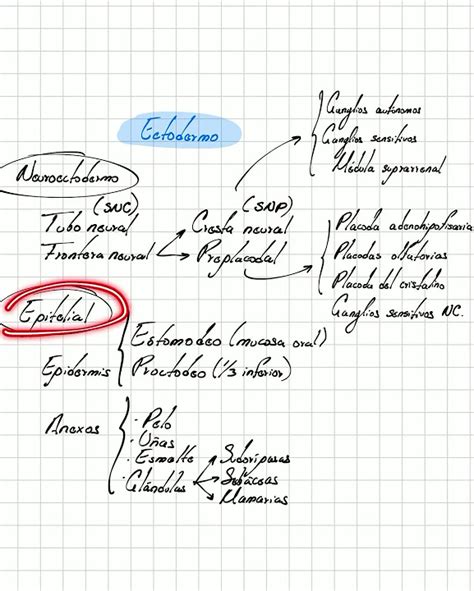 Ectodermo
Ganglios autónomos
Ganglios sensitivos
Médula suprarrenal
Neuroectodermo
(SNC)
(SNP)
Tubo neural
Cresta neural
Frontera neural
Preplacodal
Placoda adenohipofisaria
Placodas olfatorias
Placoda del cristalino
Ganglios sensitivos NC.
Epitelial
Estomodeo (mucosa oral)
Epidermis
Proctodeo (1/3 inferior)
Anexos
· Pelo
· Uñas
· Esmalte
· Glándulas
Sudoríparas
Sebáceas
Mamarias